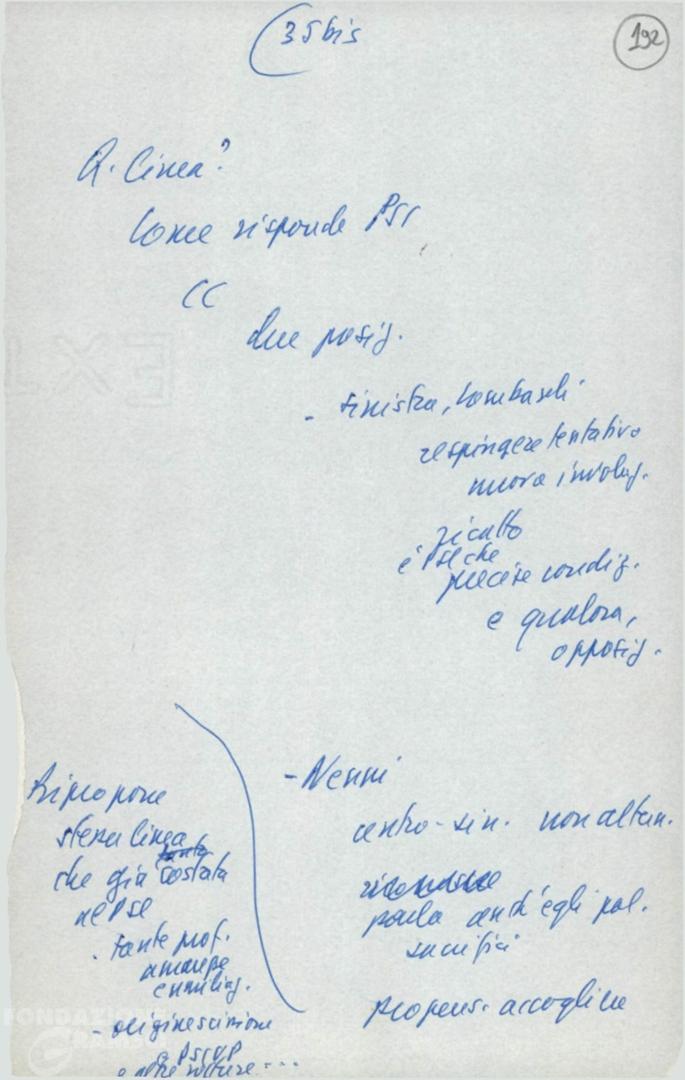 (35 bis
192
A. Linea?
Come risponde PSI
CC
due posiz.
- sinistra, Lombardi
respingere tentativo
nuova involuz.
ricatto
e
precise condiz.
e qualora,
opposiz.
- Nenni
centro-sin. non altern.
parla anch'egli pol.
sacrifici
propens. accogliere
Ripropone
stessa linea
che già costata
al PSI
- tante prof.
amarezze
e umiliaz.
- origine scissione
PSIUP
e altre rotture...
FONDAZIONE
GRAMSCI